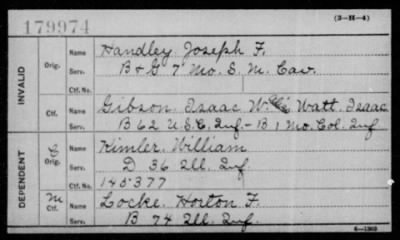 179974
(3-H-4)
INVALID
Orig.
Name Handley, Joseph F.
Serv. B & G 7 Mo. S. M. Cav.
Ctf. No.
Ctf.
Name Gibson, Isaac W. Watt, Isaac
Serv. B 62 U.S.C. Inf. - B 1 Mo. Col. Inf
DEPENDENT
Orig.
Name Kimler, William
Serv. D 36 Ill. Inf
Ctf. No. 145377
M
Ctf.
Name Locke, Horton F.
Serv. B 74 Ill. Inf.